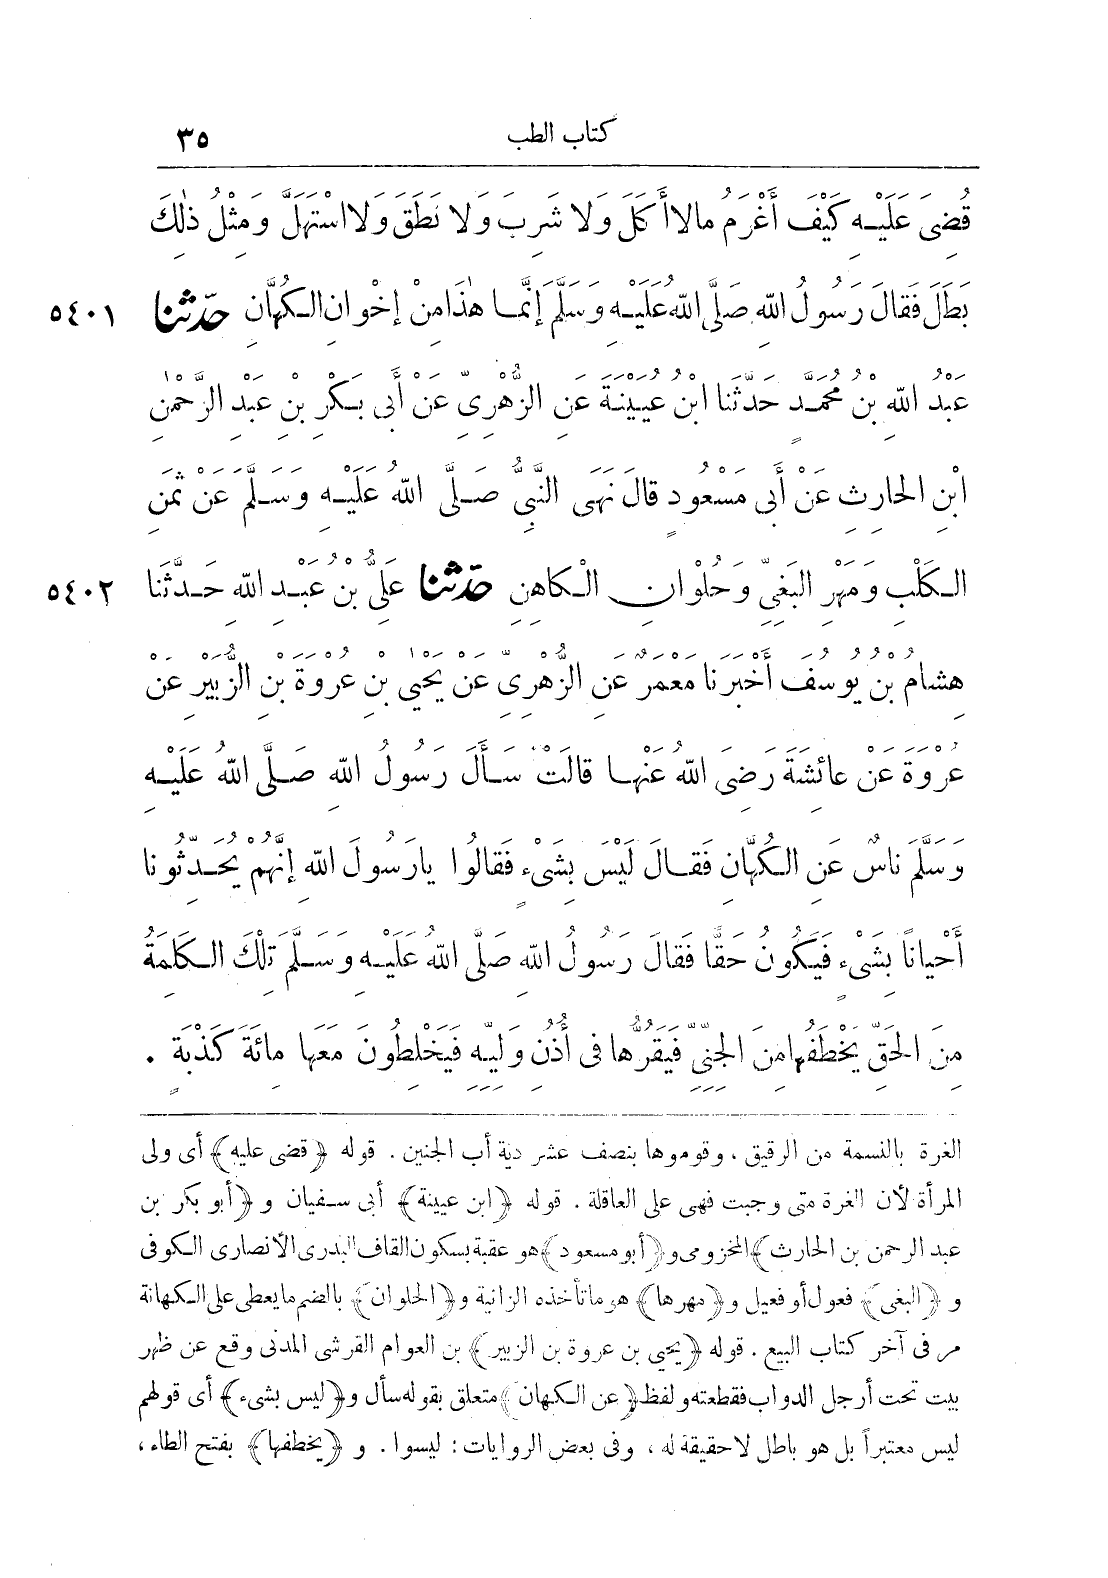 كتاب الطب ٣٥
قُضِىَ عَلَيْهِ كَيْفَ أَغْرَمُ مالا أَكَلَ وَلا شَرِبَ وَلا نَطَقَ وَلا اسْتَهَلَّ وَمِثْلُ ذٰلِكَ
بَطَلَ فَقَالَ رَسُولُ اللهِ صَلَّى اللهُ عَلَيْهِ وَسَلَّمَ إِنَّمَا هٰذَا مِنْ إِخْوَانِ الكُهَّانِ حدّثنا ٥٤٠١
عَبْدُ اللهِ بْنُ مُحَمَّدٍ حَدَّثَنا ابْنُ عُيَيْنَةَ عَنِ الزُّهْرِىِّ عَنْ أَبِى بَكْرِ بْنِ عَبْدِ الرَّحْمٰنِ
ابْنِ الحارِثِ عَنْ أَبِى مَسْعُودٍ قالَ نَهَى النَّبِىُّ صَلَّى اللهُ عَلَيْهِ وَسَلَّمَ عَنْ ثَمَنِ
الكَلْبِ وَمَهْرِ البَغِىِّ وَحُلْوانِ الْكاهِنِ حدّثنا عَلِىُّ بْنُ عَبْدِ اللهِ حَدَّثَنا ٥٤٠٢
هِشامُ بْنُ يُوسُفَ أَخْبَرَنا مَعْمَرٌ عَنِ الزُّهْرِىِّ عَنْ يَحْيَى بْنِ عُرْوَةَ بْنِ الزُّبَيْرِ عَنْ
عُرْوَةَ عَنْ عائِشَةَ رَضِىَ اللهُ عَنْها قالَتْ سَأَلَ رَسُولَ اللهِ صَلَّى اللهُ عَلَيْهِ
وَسَلَّمَ ناسٌ عَنِ الكُهَّانِ فَقالَ لَيْسَ بِشَىْءٍ فَقالُوا يارَسُولَ اللهِ إِنَّهُمْ يُحَدِّثُونا
أَحْياناً بِشَىْءٍ فَيَكُونُ حَقًّا فَقالَ رَسُولُ اللهِ صَلَّى اللهُ عَلَيْهِ وَسَلَّمَ تِلْكَ الكَلِمَةُ
مِنَ الحَقِّ يَخْطَفُها مِنَ الجِنِّىِّ فَيَقُرُّها فى أُذُنِ وَلِيِّهِ فَيَخْلِطُونَ مَعَها مِائَةَ كَذْبَةٍ .
الغرة بالنسمة من الرقيق ، وقوموها بنصف عشر دية أب الجنين . قوله ﴿قضى عليه﴾ أى ولى
المرأة لأن الغرة متى وجبت فهى على العاقلة . قوله ﴿ابن عيينة﴾ أبى سفيان و ﴿أبو بكر بن
عبد الرحمن بن الحارث﴾ المخزومى و﴿أبو مسعود﴾ هو عقبة بسكون القاف البدرى الأنصارى الكوفى
و ﴿البغى﴾ فعول أو فعيل و﴿مهرها﴾ هو ما تأخذه الزانية و﴿الحلوان﴾ بالضم ما يعطى على الكهانة
مر فى آخر كتاب البيع . قوله ﴿يحيى بن عروة بن الزبير﴾ بن العوام القرشى المدنى وقع عن ظهر
بيت تحت أرجل الدواب فقطعته ولفظ ﴿عن الكهان﴾ متعلق بقوله سأل و﴿ليس بشىء﴾ أى قولهم
ليس معتبراً بل هو باطل لا حقيقة له ، وفى بعض الروايات : ليسوا . و ﴿يخطفها﴾ بفتح الطاء ،